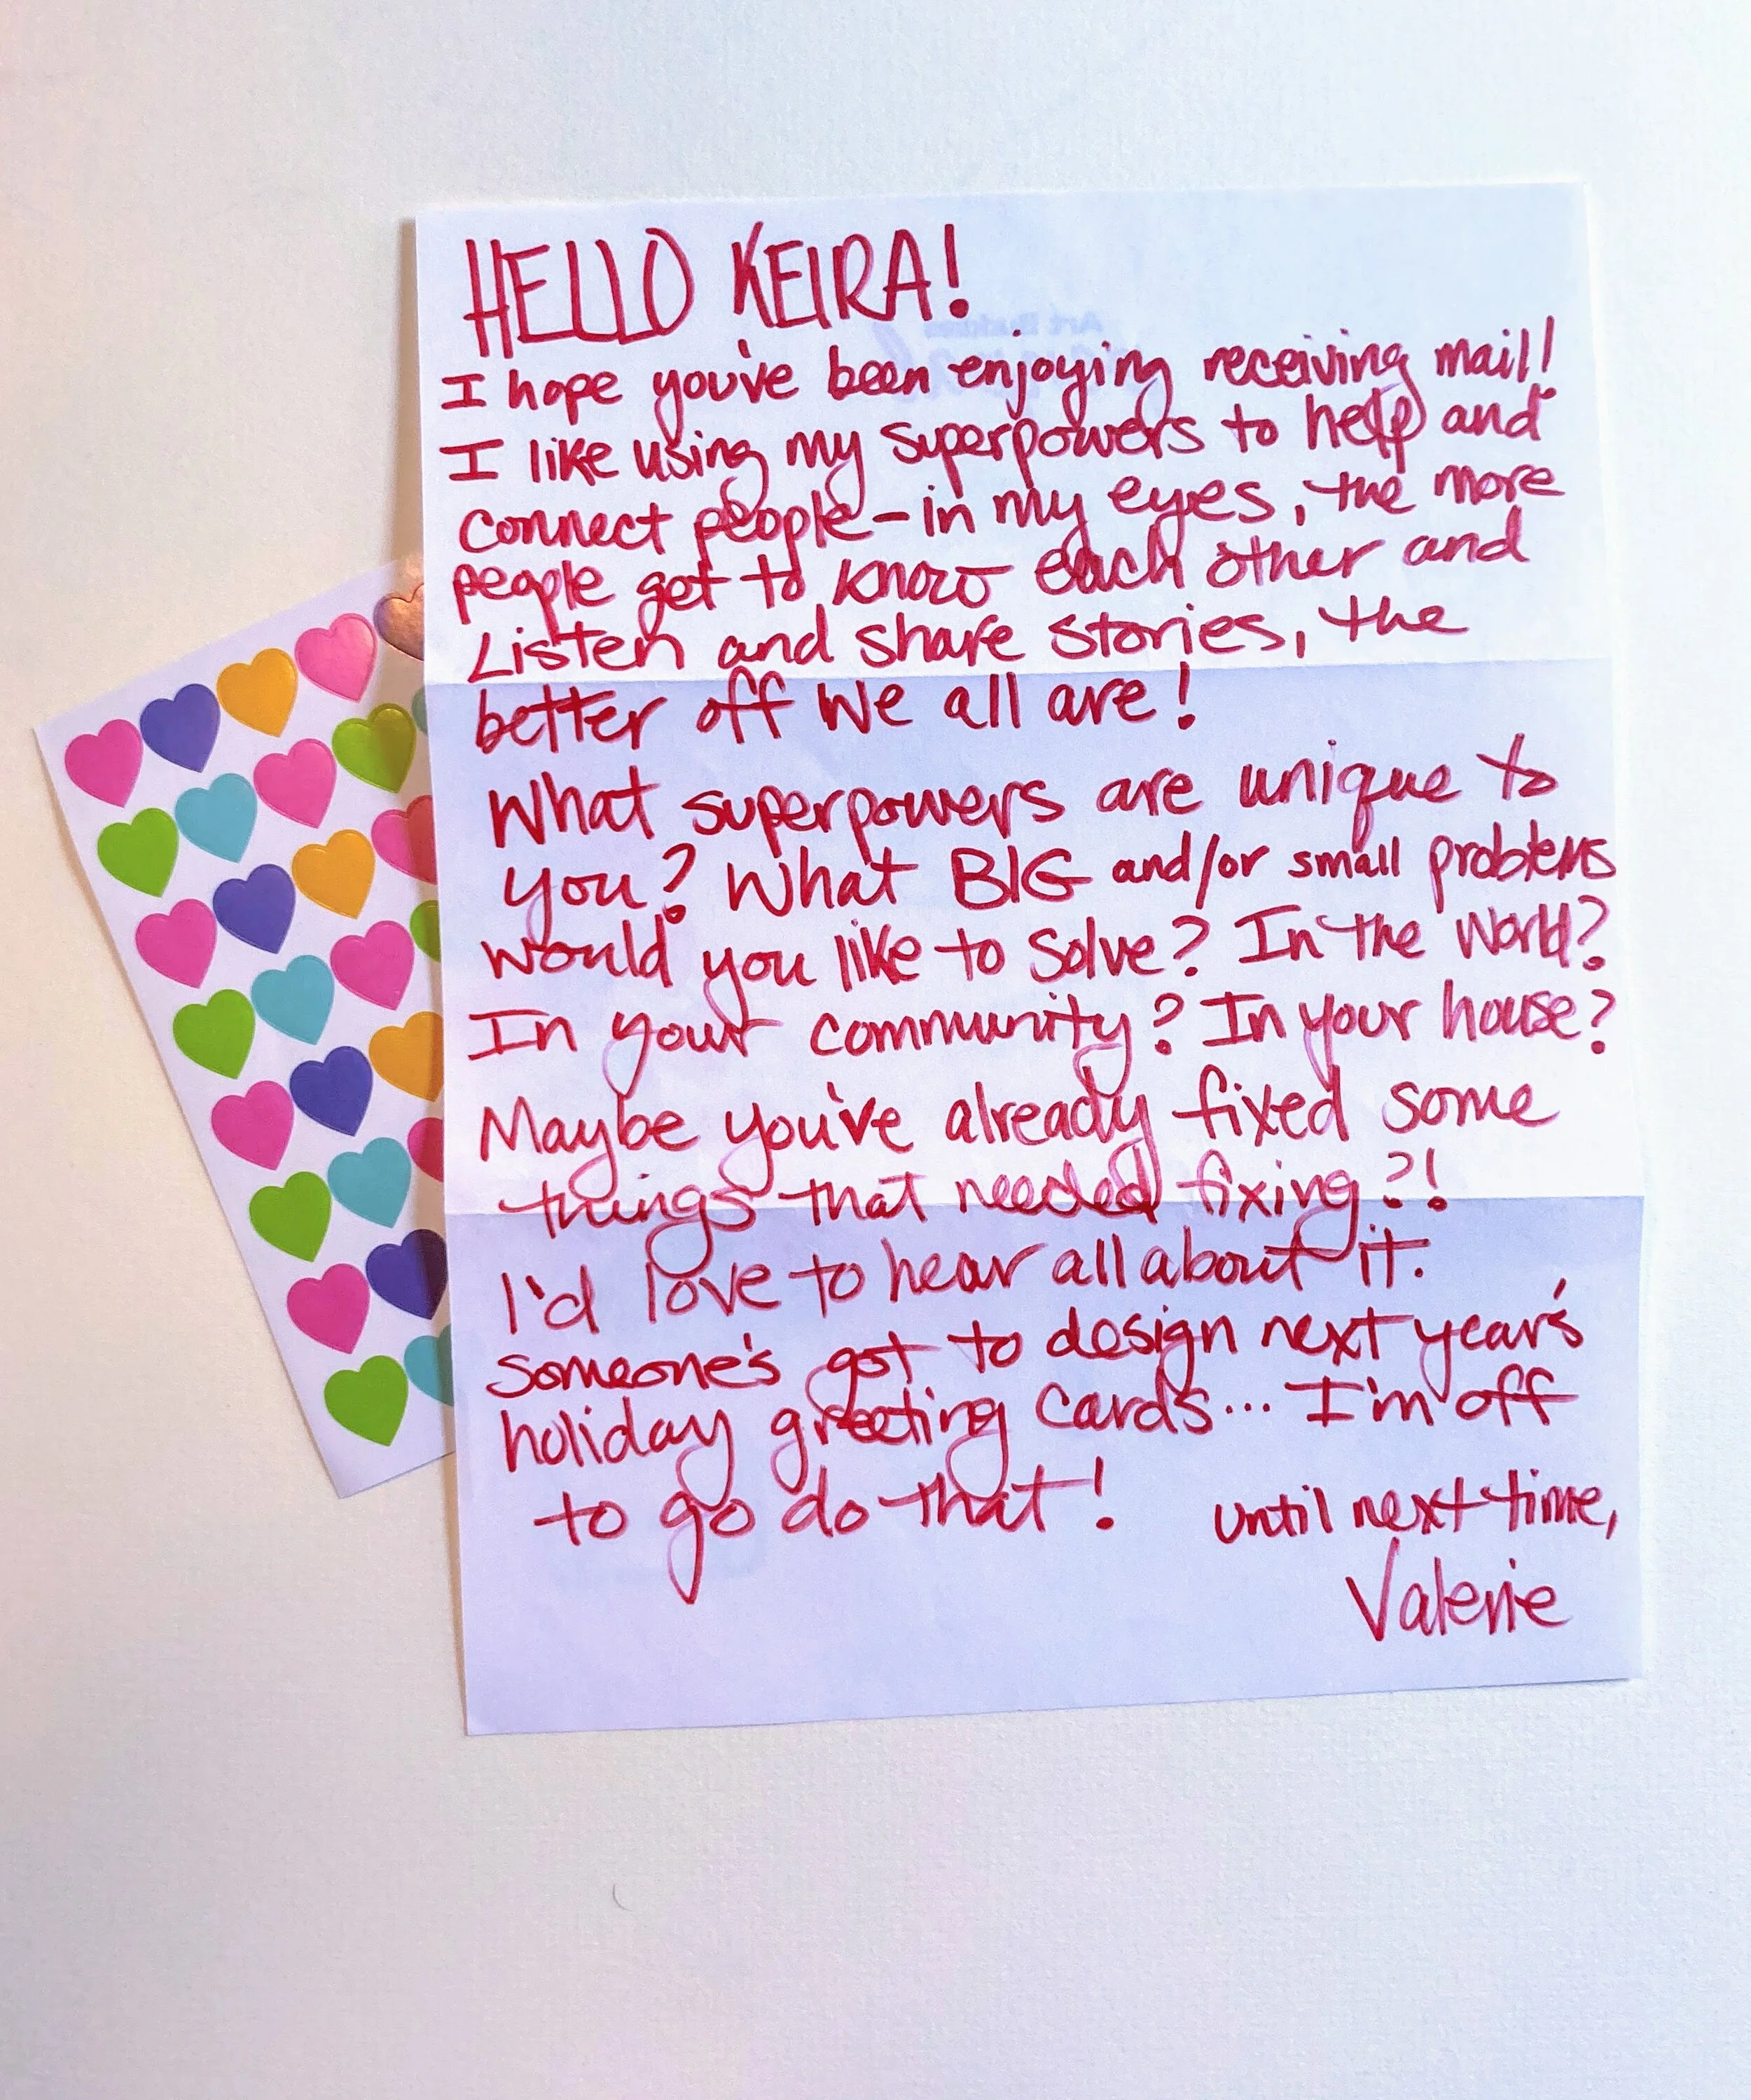 HELLO KEIRA!
I hope you've been enjoying receiving mail!
I like using my superpowers to help and
connect people - in my eyes, the more
people get to know each other and
Listen and share stories, the
better off we all are!
What superpowers are unique to
you? What BIG and/or small problems
would you like to solve? In the world?
In your community? In your house?
Maybe you've already fixed some
things that needed fixing?!
I'd love to hear all about it.
Someone's got to design next year's
holiday greeting cards... I'm off
to go do that!
until next time,
Valerie